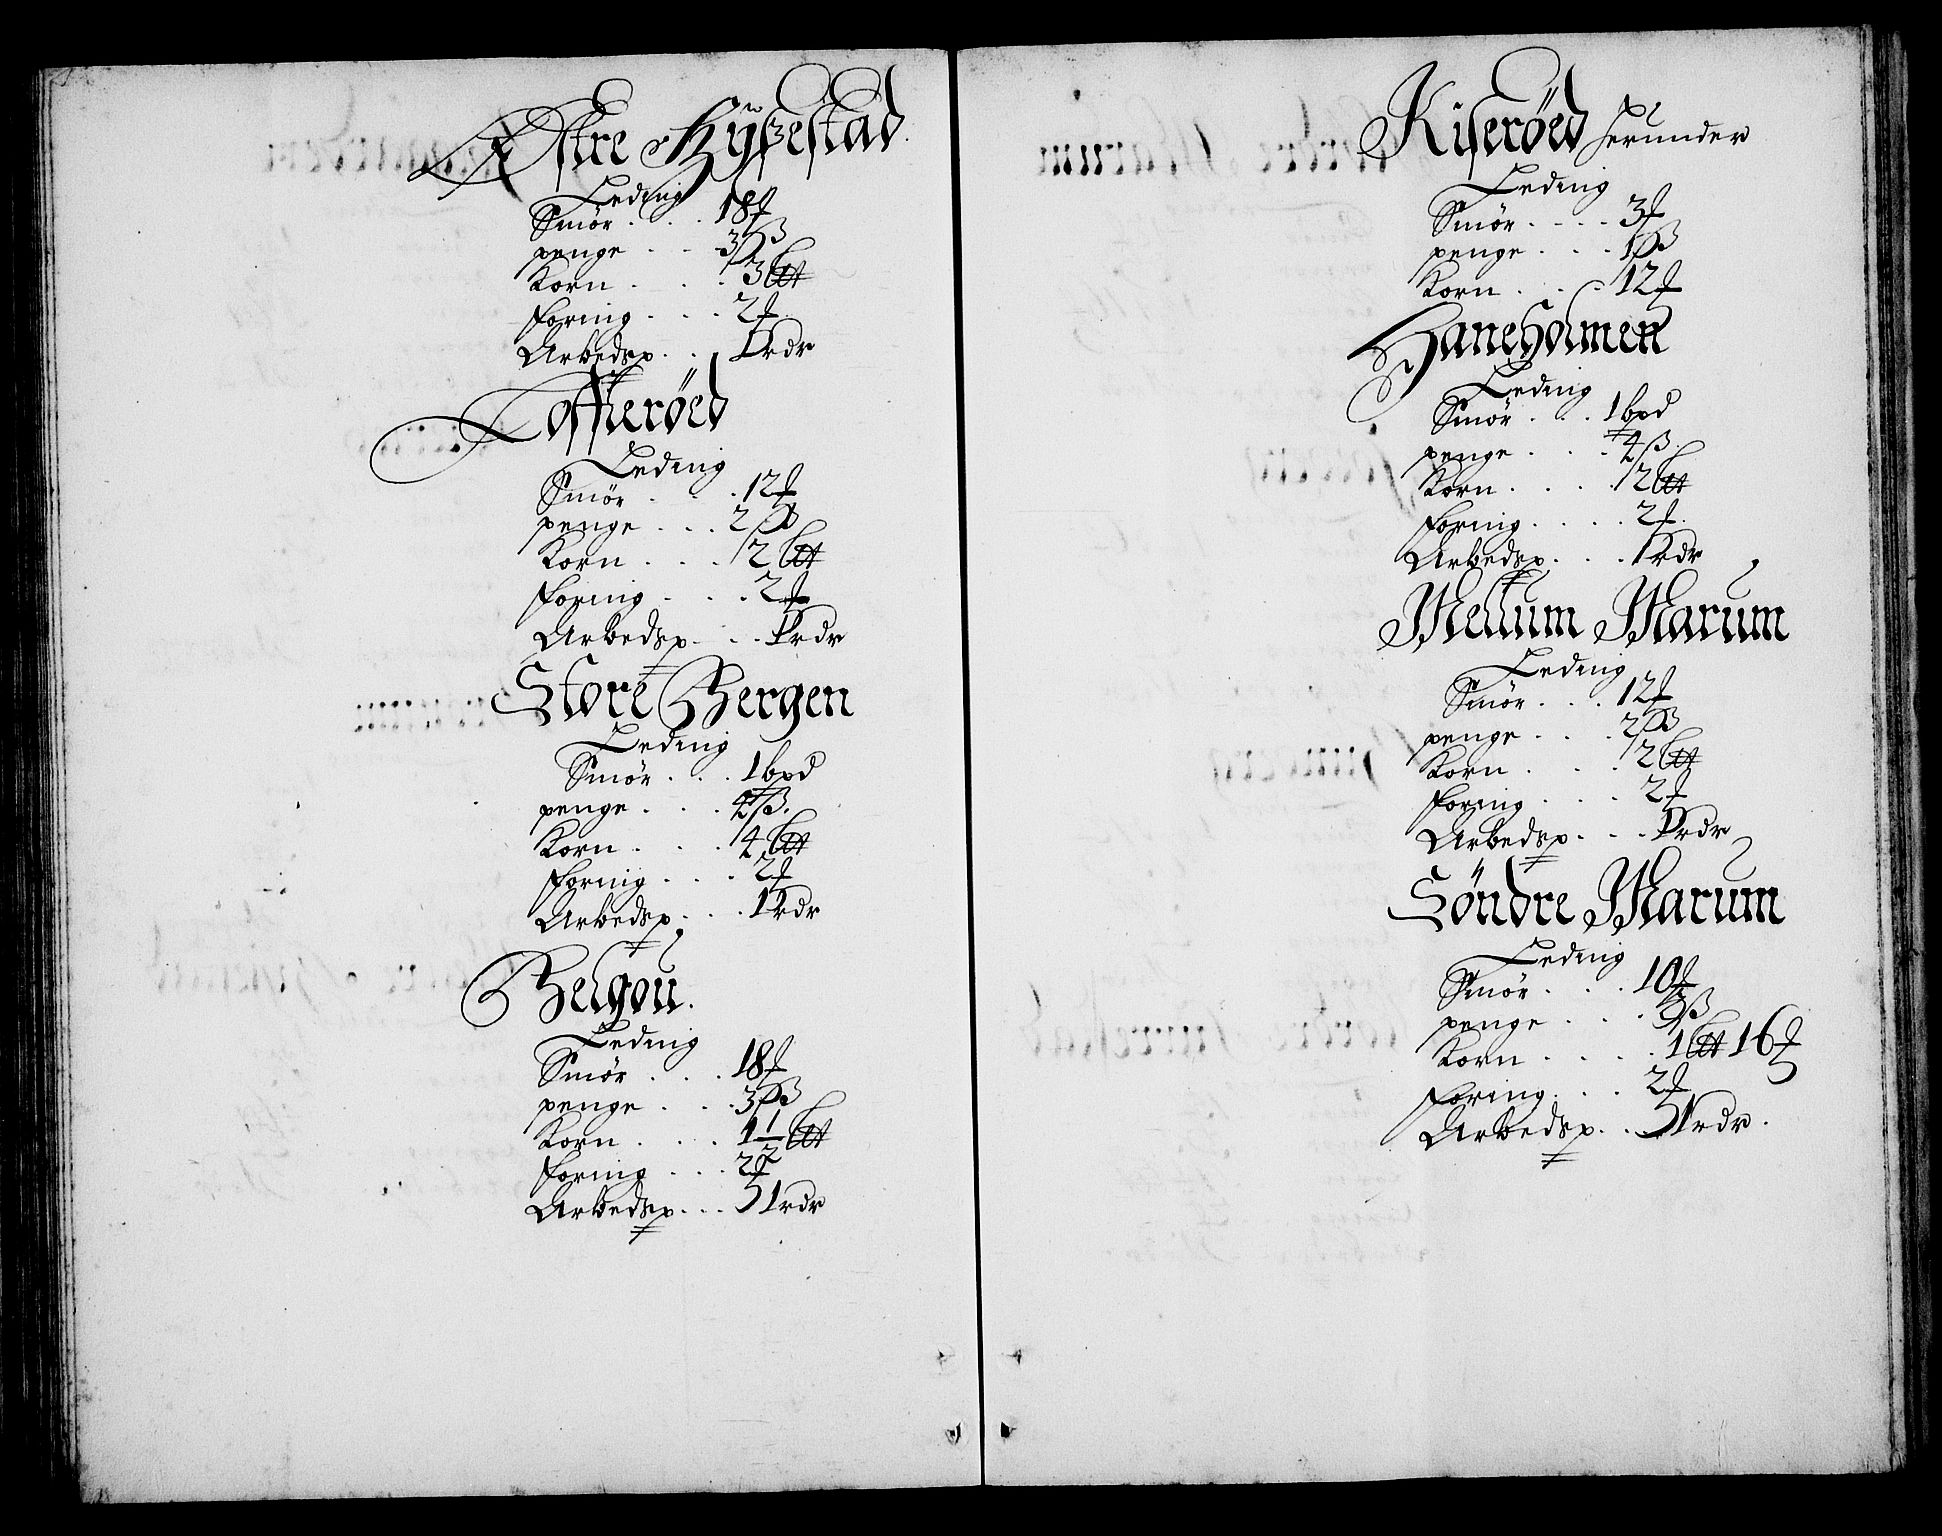 Østre Hÿßestad
Leding
Smör . . . 18 ℔
penge . . . 3 β
Korn . . . 3 L℔
foring . . . 2 ℔
Arbedsp. . . 1 rdr
Tofferöed
Leding
Smör . . . 12 ℔
penge . . . 2 β
Korn . . . 2 L℔
foring . . . 2 ℔
Arbedsp. . . 1 rdr
Store Bergen
Leding
Smör . . . 1 bpd
penge . . . 4 β.
Korn . . . 4 L℔
foring . . . 2 ℔
Arbedsp. . . 1 rdr
Helgou.
Leding
Smör . . . 18 ℔
penge . . . 3 β
Korn . . . 1 1/2 L℔
foring . . . 2 ℔
Arbedsp. . . 1 rdr
Kiseröed herunder
Leding
Smör . . . 3 ℔
penge . . . 1 β
Korn . . . 12 ℔
Haneholmen
Leding
Smör . . . 1 bpd
penge . . . 4 β.
Korn . . . 2 L℔
foring . . . 2 ℔.
Arbedsp. . . 1 rdr
Mellum Marum
Leding
Smör . . . 12 ℔
penge . . . 2 β
Korn . . . 2 L℔
foring . . . 2 ℔
Arbedsp. . . 1 rdr
Söndre Marum
Leding
Smör . . . 10 ℔
penge . . . 2 β
Korn . . . 1 L℔ 16 ℔
foring . . . 2 ℔
Arbedsp. . . 1 rdr.